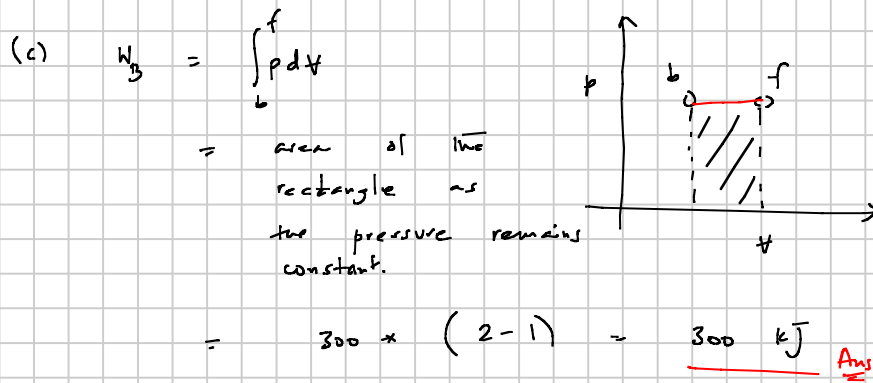 (c) W_B = ∫_b^f p d∀
= area of the
rectangle as
the pressure remains
constant.
= 300 * (2-1) = 300 kJ Ans
p
b f
∀